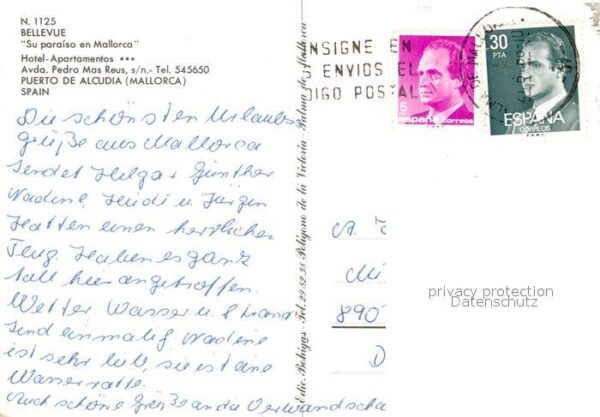 N. 1125
BELLEVUE
"Su paraíso en Mallorca"
Hotel-Apartamentos ***
Avda. Pedro Mas Reus, s/n.- Tel. 545650
PUERTO DE ALCUDIA (MALLORCA)
SPAIN
Die schönsten Urlaubs
grüße aus Mallorca
sendet Helga + Günther
Nadine, Heidi u. Jürgen
Hatten einen herrlichen
Flug. Haben es ganz
toll hier angetroffen.
Wetter Wasser u. Strand
sind einmalig Nadine
ist sehr lieb, sie ist eine
Wasserratte.
Auch schöne Grüße an da Verwandscha
Edic. Bohigas - Tel. 29 32 35 Polígono de la Victoria - Palma de Mallorca
NSIGNE EN
S ENVIOS EL
DIGO POSTAL
5
españa correos
30
PTA
ESPAÑA
CORREOS
890
D
privacy protection
Datenschutz